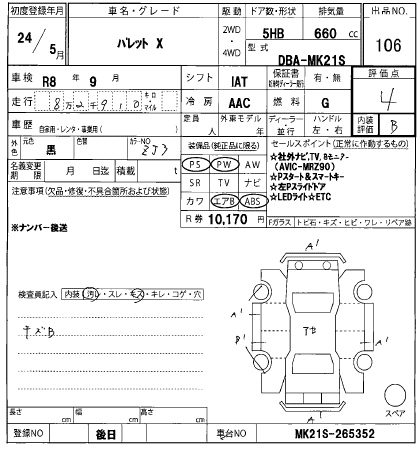 初度登録年月 車名・グレード 駆動 ドア数・形状 排気量 出品NO.
24/5月 パレット X 2WD・4WD 5HB 660 cc 106
型式 DBA-MK21S
車検 R8 年 9 月 シフト IAT 保証書 有・無 評価点
走行 8万2千910 キロ・マイル 冷房 AAC 燃料 G 4
車歴 自家用・レンタ・事業用( ) 定員 人 外車モデル 年 ディーラー・並行 ハンドル 左・右 内装評価 B
外色 元色 黒 色替 カラーNO ZJ3 装備品(純正品に限る) セールスポイント(正常に作動するもの)
名義変更期限 月 日 積載 t
PS PW AW
SR TV ナビ
カワ エアB ABS
R券 10,170 円
☆社外ナビ,TV,Bモニター
(AVIC-MRZ90)
☆Pスタート&スマートキー
☆左Pスライドドア
☆LEDライト☆ETC
注意事項(欠品・修復・不具合箇所および状態)
Fガラス トビ石・キズ・ヒビ・ワレ・リペア跡
※ナンバー後送
検査員記入 内装(汚レ・スレ・キズ・キレ・コゲ・穴
キズB
A'
A'
A'
B'
A'
A'
スペア
長さ cm 幅 cm 高さ cm
登録NO 後日 車台NO MK21S-265352